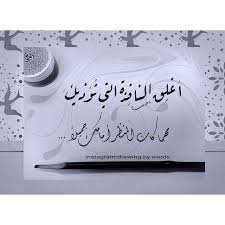 أغلق النافذة التي تؤذيك
مهما كان المنظر أمامك جميلاً ...
instagram:drawing.by.words